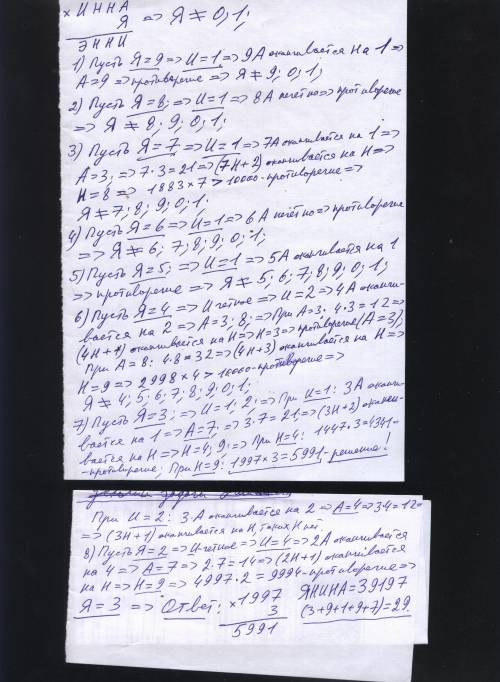 × ИННА
Я => Я ≠ 0, 1;
ЭННИ
1) Пусть Я = 9 => И = 1 => 9А оканчивается на 1 =>
А = 9 => противоречие => Я ≠ 9; 0; 1;
2) Пусть Я = 8; => И = 1 => 8А нечётно => противоречие
=> Я ≠ 8; 9; 0; 1;
3) Пусть Я = 7 => И = 1 => 7А оканчивается на 1 =>
А = 3; => 7·3 = 21 => (7Н+2) оканчивается на Н =>
Н = 8 => 1883 × 7 > 10000 - противоречие =>
Я ≠ 7; 8; 9; 0; 1;
4) Пусть Я = 6 => И = 1 => 6А нечётно => противоречие
=> Я ≠ 6; 7; 8; 9; 0; 1;
5) Пусть Я = 5; => И = 1 => 5А оканчивается на 1
=> противоречие => Я ≠ 5; 6; 7; 8; 9; 0; 1;
6) Пусть Я = 4 => И чётное => И = 2 => 4А оканчи-
вается на 2 => А = 3; 8; => При А = 3: 4·3 = 12 =>
(4Н+1) оканчивается на Н => Н = 3 => противоречие (А = 3);
При А = 8: 4·8 = 32 => (4Н+3) оканчивается на Н =>
Н = 9 => 2998 × 4 > 10000 - противоречие =>
Я ≠ 4; 5; 6; 7; 8; 9; 0; 1;
7) Пусть Я = 3; => И = 1; 2; => При И = 1: 3А оканчи-
вается на 1 => А = 7; => 3·7 = 21 => (3Н+2) оканчи-
вается на Н => Н = 4; 9; => При Н = 4: 1447·3 = 4341 -
- противоречие; При Н = 9: 1997 × 3 = 5991 - решение!
При И = 2: 3·А оканчивается на 2 => А = 4 => 3·4 = 12 =>
=> (3Н+1) оканчивается на Н, таких Н нет.
8) Пусть Я = 2 => И чётное => И = 4 => 2А оканчивается
на 4 => А = 7 => 2·7 = 14 => (2Н+1) оканчивается
на Н => Н = 9 => 4997·2 = 9994 - противоречие =>
Я = 3 => Ответ: × 1997 ЯНИНА = 39197
3 (3+9+1+9+7) = 29
5991